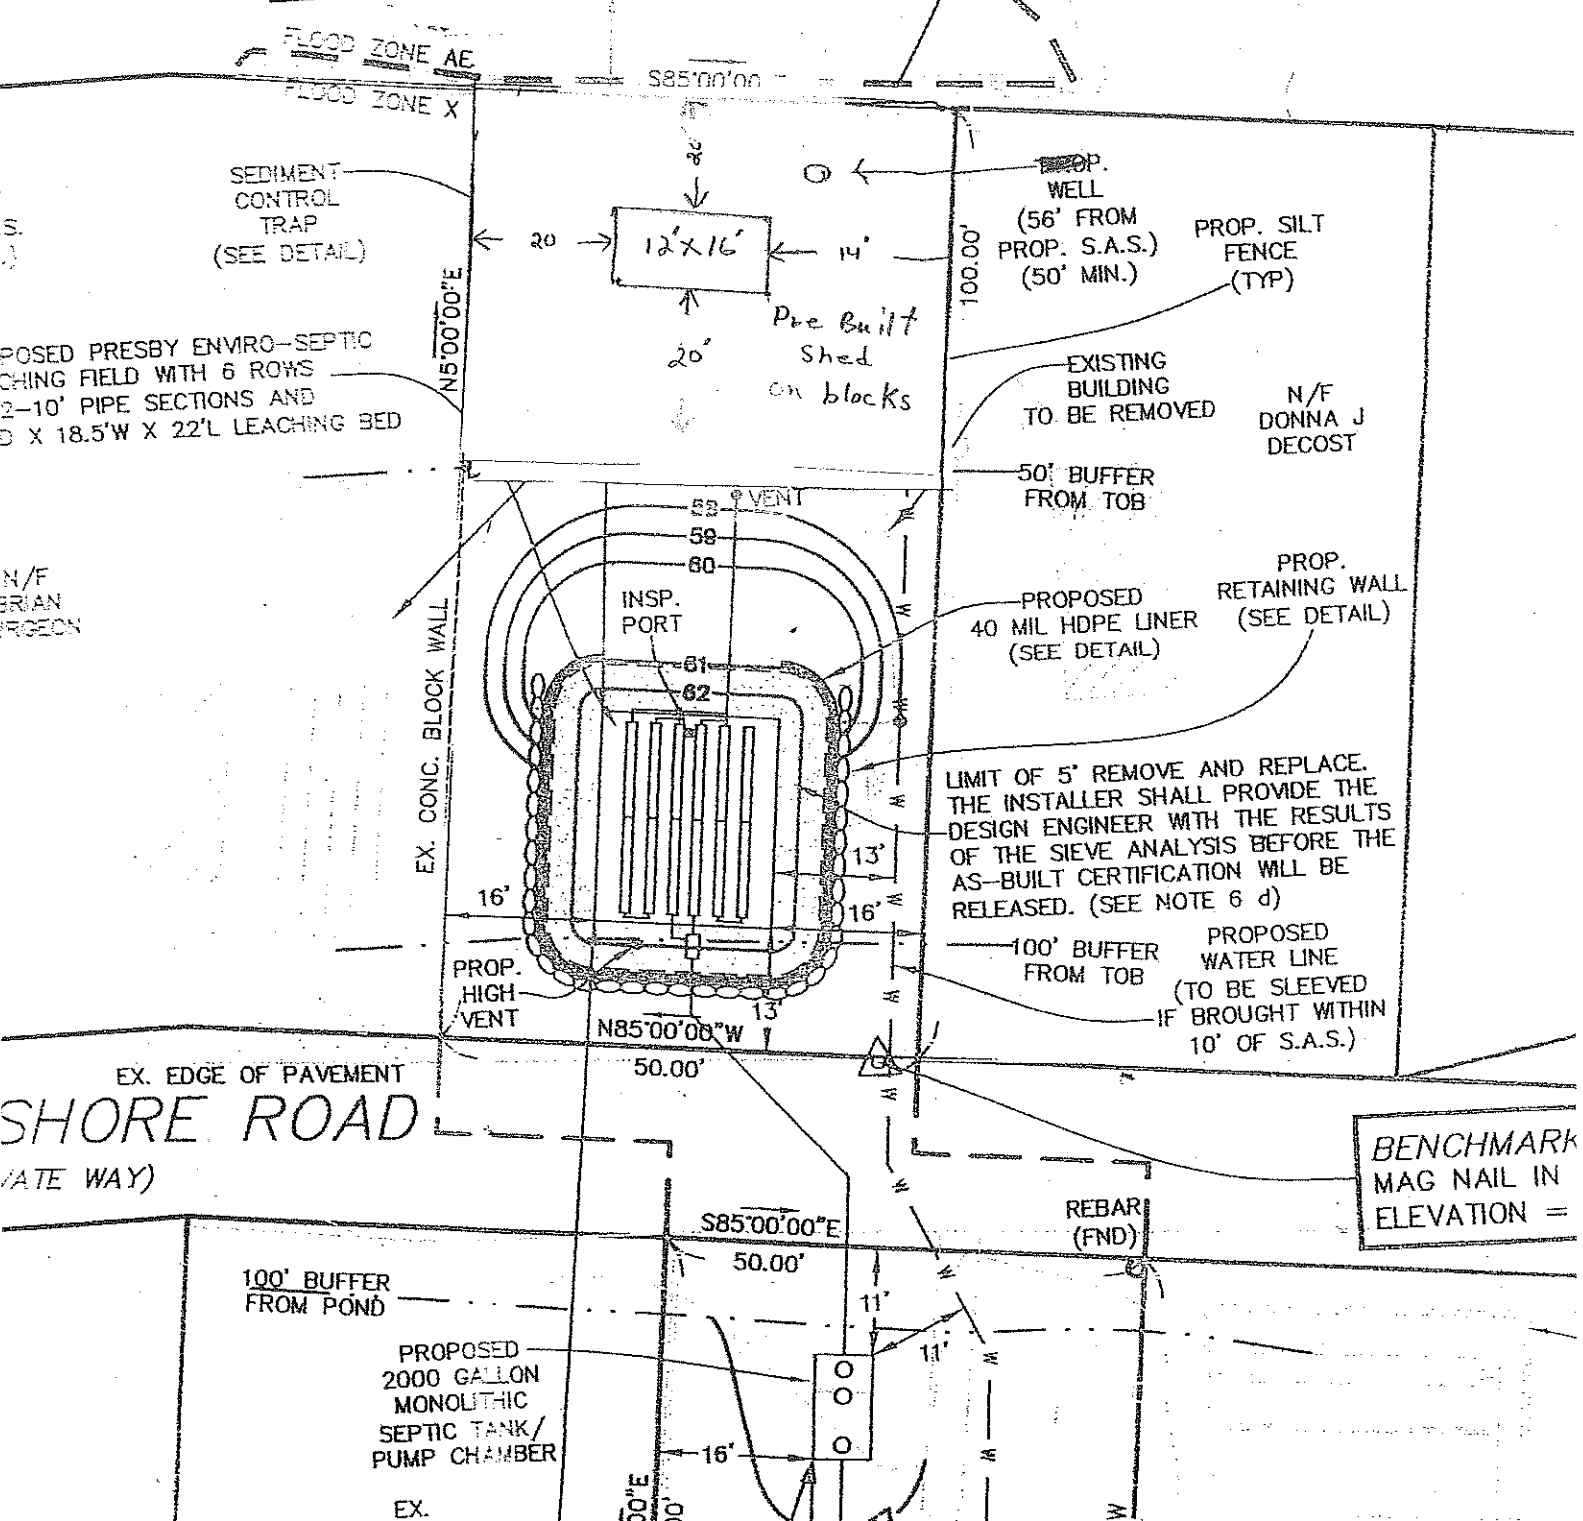 FLOOD ZONE AE
FLOOD ZONE X
S85°00'00
SEDIMENT
CONTROL
TRAP
(SEE DETAIL)
S.
.)
20'
20
12'X16'
14'
20'
Pre Built
Shed
on blocks
100.00'
N5°00'00"E
WELL
(56' FROM
PROP. S.A.S.)
(50' MIN.)
PROP. SILT
FENCE
(TYP)
POSED PRESBY ENVIRO-SEPTIC
CHING FIELD WITH 6 ROWS
2-10' PIPE SECTIONS AND
D X 18.5'W X 22'L LEACHING BED
EXISTING
BUILDING
TO BE REMOVED
N/F
DONNA J
DECOST
50' BUFFER
FROM TOB
VENT
58
59
60
INSP.
PORT
61
62
N/F
BRIAN
RGEON
EX. CONC. BLOCK WALL
PROPOSED
40 MIL HDPE LINER
(SEE DETAIL)
PROP.
RETAINING WALL
(SEE DETAIL)
W
W
W
W
W
W
LIMIT OF 5' REMOVE AND REPLACE.
THE INSTALLER SHALL PROVIDE THE
DESIGN ENGINEER WITH THE RESULTS
OF THE SIEVE ANALYSIS BEFORE THE
AS-BUILT CERTIFICATION WILL BE
RELEASED. (SEE NOTE 6 d)
13'
16'
16'
100' BUFFER
FROM TOB
PROPOSED
WATER LINE
(TO BE SLEEVED
IF BROUGHT WITHIN
10' OF S.A.S.)
PROP.
HIGH
VENT
13'
N85°00'00"W
50.00'
EX. EDGE OF PAVEMENT
SHORE ROAD
VATE WAY)
W
W
BENCHMARK
MAG NAIL IN
ELEVATION =
REBAR
(FND)
S85°00'00"E
50.00'
100' BUFFER
FROM POND
11'
11'
W
W
W
PROPOSED
2000 GALLON
MONOLITHIC
SEPTIC TANK/
PUMP CHAMBER
16'
EX.
00"E
00'
W